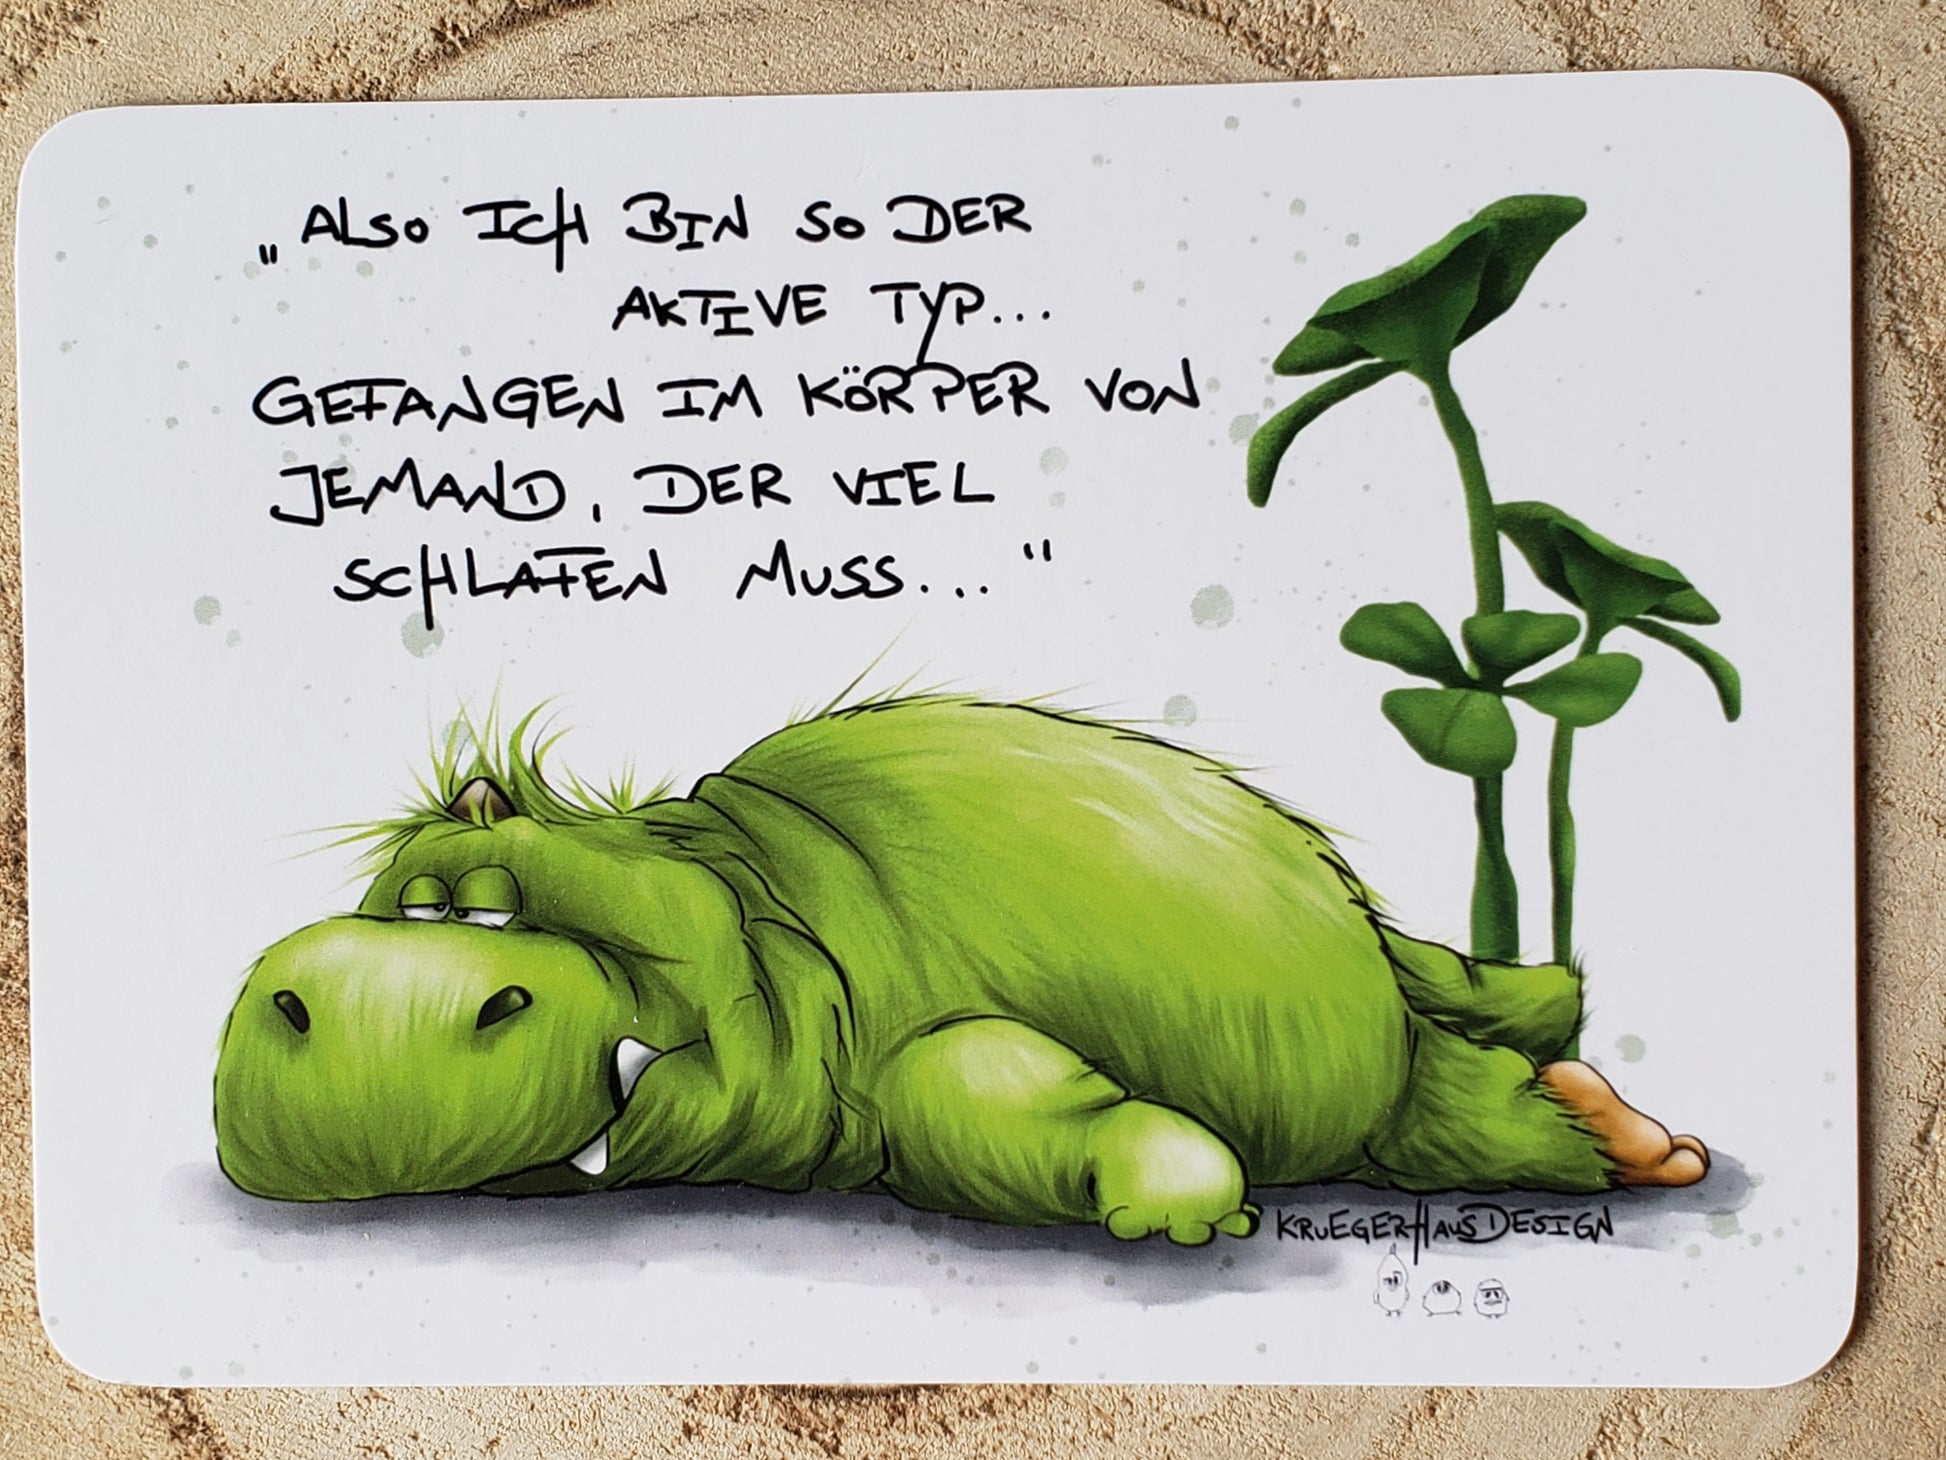 „ALSO ICH BIN SO DER
AKTIVE TYP...
GEFANGEN IM KÖRPER VON
JEMAND, DER VIEL
SCHLAFEN MUSS..."
KRUEGERHAUSDESIGN